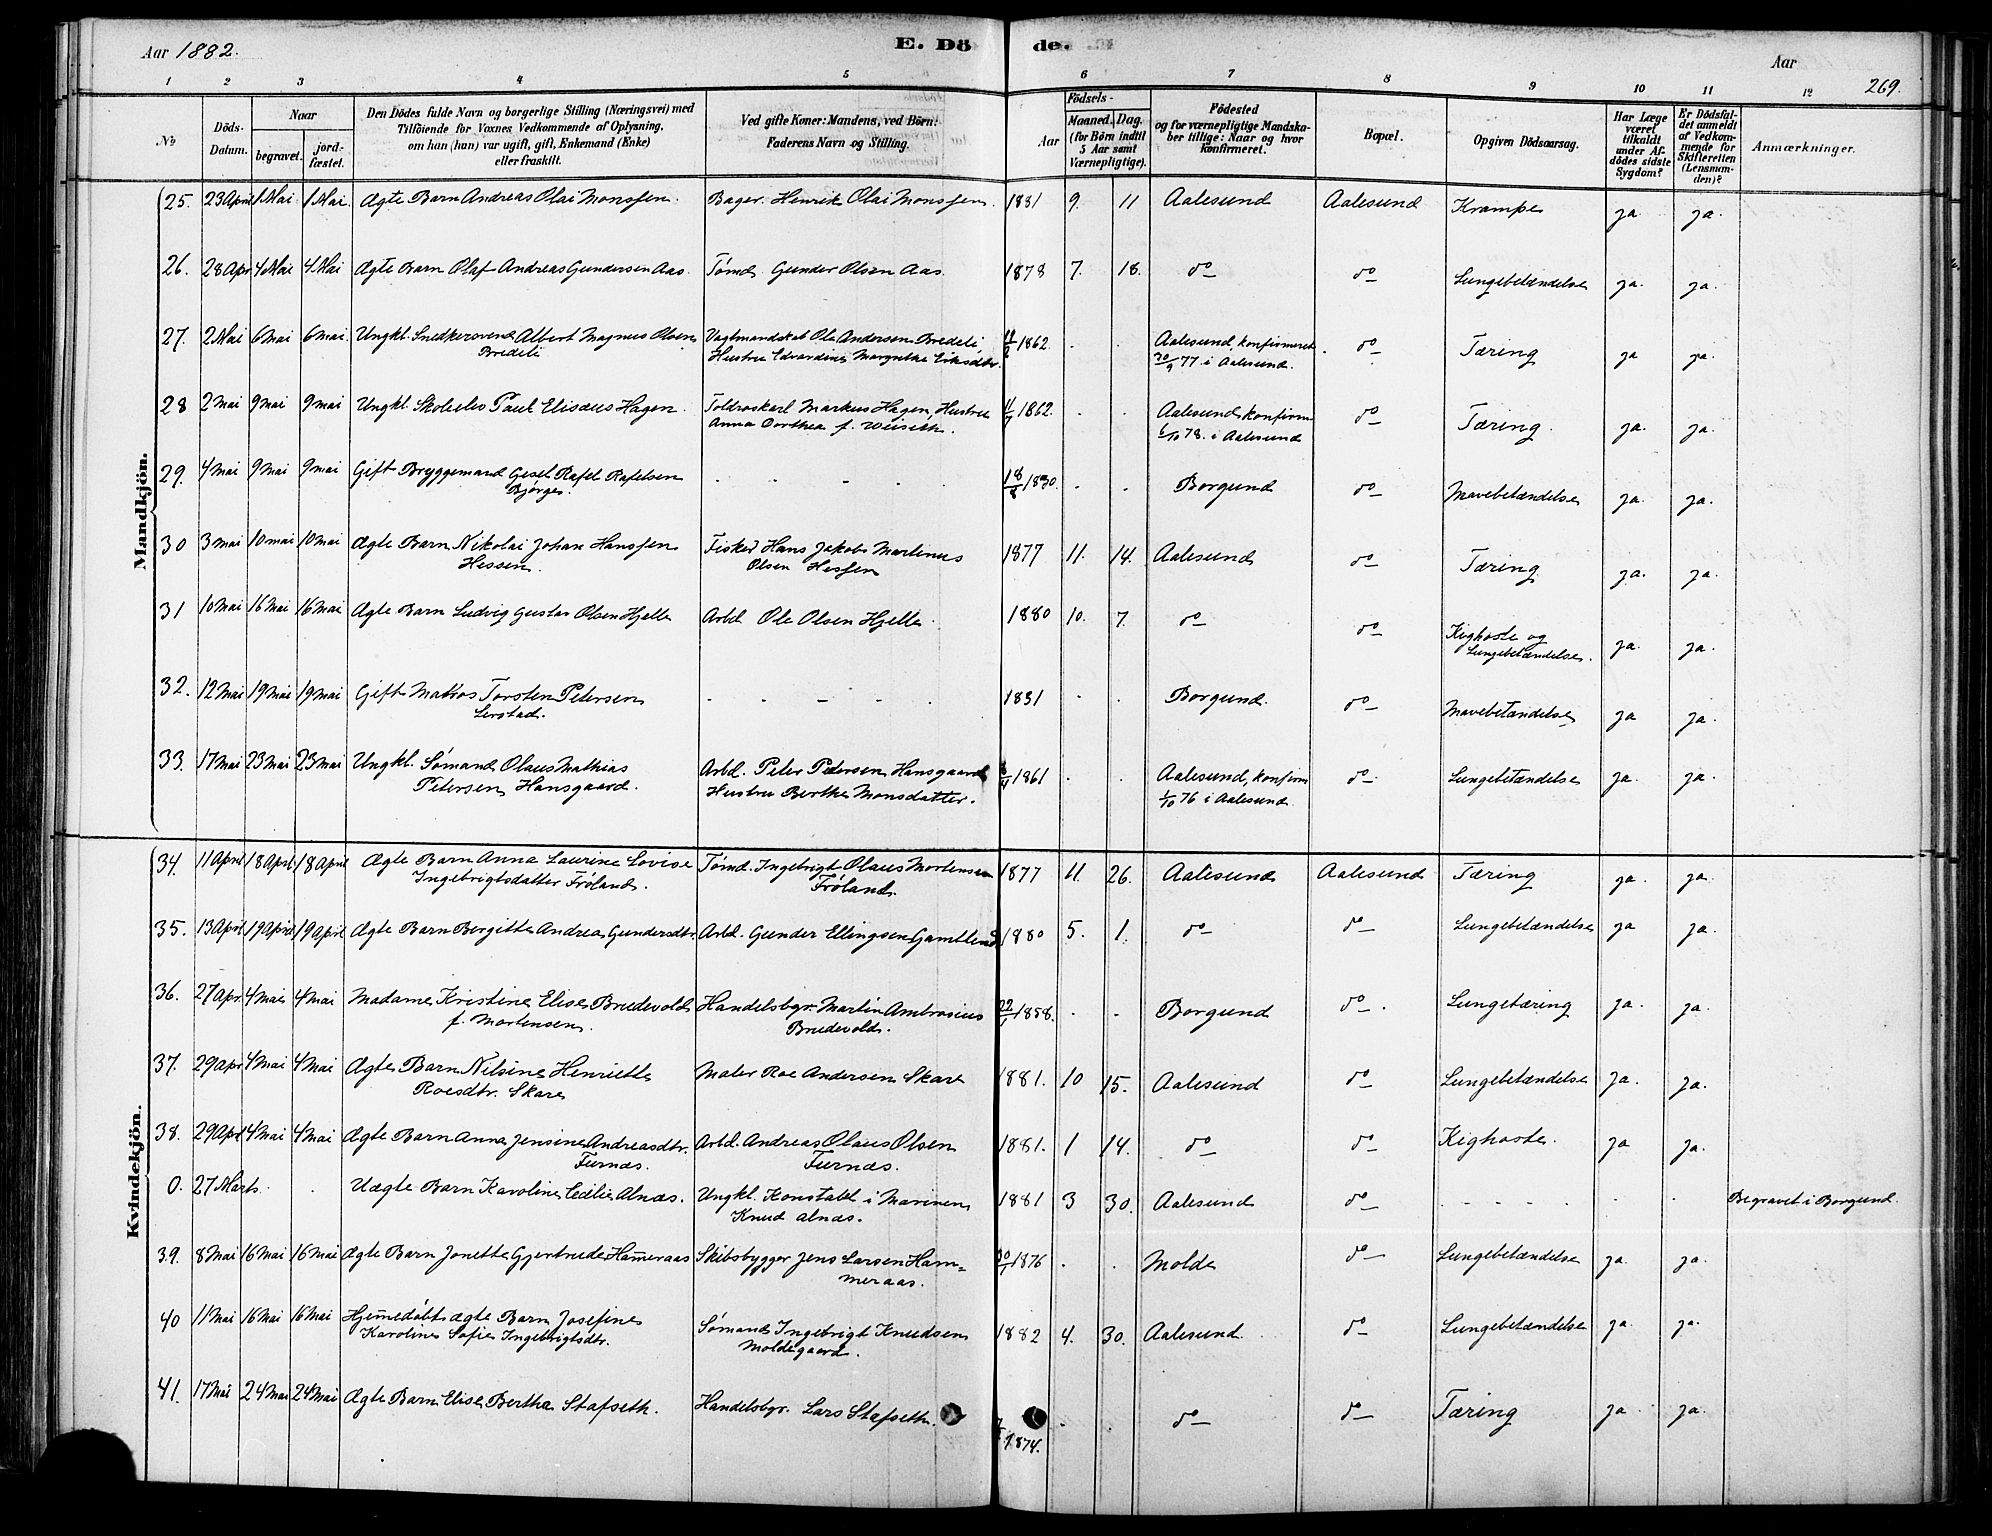 Aar 1882.
E. Dö
de.
Aar
269.
1 2 3 4 5 6 7 8 9 10 11 12
№
Döds-Datum.
Naar begravet.
jord-fæstet.
Den Dödes fulde Navn og borgerlige Stilling (Næringsvei) med
Tilföiende for Voxnes Vedkommende af Oplysning,
om han (hun) var ugift, gift, Enkemand (Enke)
eller fraskilt.
Ved gifte Koner: Mandens, ved Börn:
Faderens Navn og Stilling.
Födsels-
Aar
Maaned. Dag.
(for Börn indtil
5 Aar samt
Værnepligtige).
Födested
og for værnepligtige Mandska-
ber tillige: Naar og hvor
konfirmeret.
Bopæl.
Opgiven Dödsaarsag.
Har Læge
været
tilkaldt
under Af-
dödes sidste
Sygdom?
Er Dödsfal-
det anmeldt
af Vedkom-
mende for
Skifteretten
(Lensman-
den)?
Anmærkninger.
Mandkjön.
25. 23 April 1 Mai 1 Mai Ægte Barn Andreas Olai Monssen. Bager. Henrik Olai Monssen. 1881 9. 11 Aalesund Aalesund Krampe ja ja.
26. 28 Apr 4 Mai 4 Mai Ægte Barn Olaf Andreas Gundersen Aas. Tømd. Gunder Olsen Aas. 1878 7. 18. do do Lungebetændelse ja. ja.
27. 2 Mai 6 Mai 6 Mai. Ungkl. Snedkersvend Albert Magnus Olsen Vagtmandskab Ole Andersen Bredeli 1862. Aalesund, konfirmeret do Tæring ja ja.
Bredeli Hustru Edvardine Margrethe Eriksdtr. 30/9 77 i Aalesund.
28 2 Mai 9 Mai 9 Mai Ungkl. Skoleelev Paul Elisæus Hagen. Toldroskarl Markus Hagen, Hustru 1862. Aalesund, konfirm do Tæring. ja. ja.
Anna Dorthea f. Weiseth. 6/10 78. i Aalesund
29. 4 Mai 9 Mai 9 Mai Gift Bryggemand Rafel Rafelsen 18/8 1830. Borgund do Mavebetændelse ja. ja.
Bjørge.
30 3 Mai 10 Mai 10 Mai Ægte Barn Nikolai Johan Hanssen Fisker Hans Jakob Martinus 1877 11. 14. Aalesund do Tæring ja. ja.
Hessen. Olsen Hessen
31 10 Mai 16 Mai 16 Mai Ægte Barn Ludvig Gustav Olsen Hjelle Arbd. Ole Olsen Hjelle. 1880 10. 7. do do Kighoste og ja. ja.
Lungebetændelse.
32. 12 Mai 19 Mai 19 Mai Gift Matros Torsten Petersen 1831 Borgund. do Mavebetændelse ja ja.
Lerstad.
33. 17 Mai 23 Mai 23 Mai Ungkl. Sømand Olaus Mathias Arbd. Peter Petersen Hansgaard 1861 Aalesund, konfirm do Lungebetændelse ja. ja.
Petersen Hansgaard. Hustru Berthe Monsdatter. 1/10 76 i Aalesund.
Kvindekjön.
34. 11 April 18 April 18 April Ægte Barn Anna Laurine Lovise Tømd. Ingebrigt Olaus Mortensen 1877 11. 26. Aalesund Aalesund Tæring ja. ja.
Ingebrigtsdatter Frøland. Frøland.
35. 13 April 19 April 19 April Ægte Barn Bergitte Andrea Gundersdtr. Arbd. Gunder Ellingsen Gamtlend 1880 5. 1. do do Lungebetændelse ja ja.
36. 27 Apr. 4 Mai 4 Mai Madame Kristine Elise Brudevold Handelsbgr. Martin Ambrosius 22/1 1858. Borgund do Lungetæring ja. ja.
f. Mortensen. Brudevold.
37. 29 Apr 4 Mai 4 Mai Ægte Barn Nilsine Henriette Maler Roe Andersen Skare 1881. 10 15. Aalesund do Lungebetændelse ja. ja.
Roesdtr. Skare
38. 29 Apr. 4 Mai 4 Mai Ægte Barn Anna Jensine Andreasdtr. Arbd. Andreas Olaus Olsen 1881. 1 14. do do Kighoste. ja ja.
Furnæs. Furnæs.
0. 27 Marts. Uægte Barn Karoline Cecilie Alnæs. Ungkl. Konstabel i Marinen 1881 3 30. Aalesund do Begravet i Borgund.
Knud Alnæs.
39. 8 Mai 16 Mai 16 Mai Ægte Barn Jonette Gjertrude Hameraas Skibsbygger Jens Larsen Ham- 1876 Molde do Lungebetændelse ja. ja.
meraas.
40 11 Mai 16 Mai 16 Mai Hjemmedøbt ægte Barn Josefine Sømand Ingebrigt Knudsen 1882 4. 30. Aalesund. do Lungebetændelse ja. ja.
Karoline Sofie Ingebrigtsdtr. Moldegaard.
41. 17 Mai 24 Mai 24 Mai Ægte Barn Elise Berthe Stafseth. Handelsbgr. Lars Stafseth. 1874. do do Tæring ja ja.